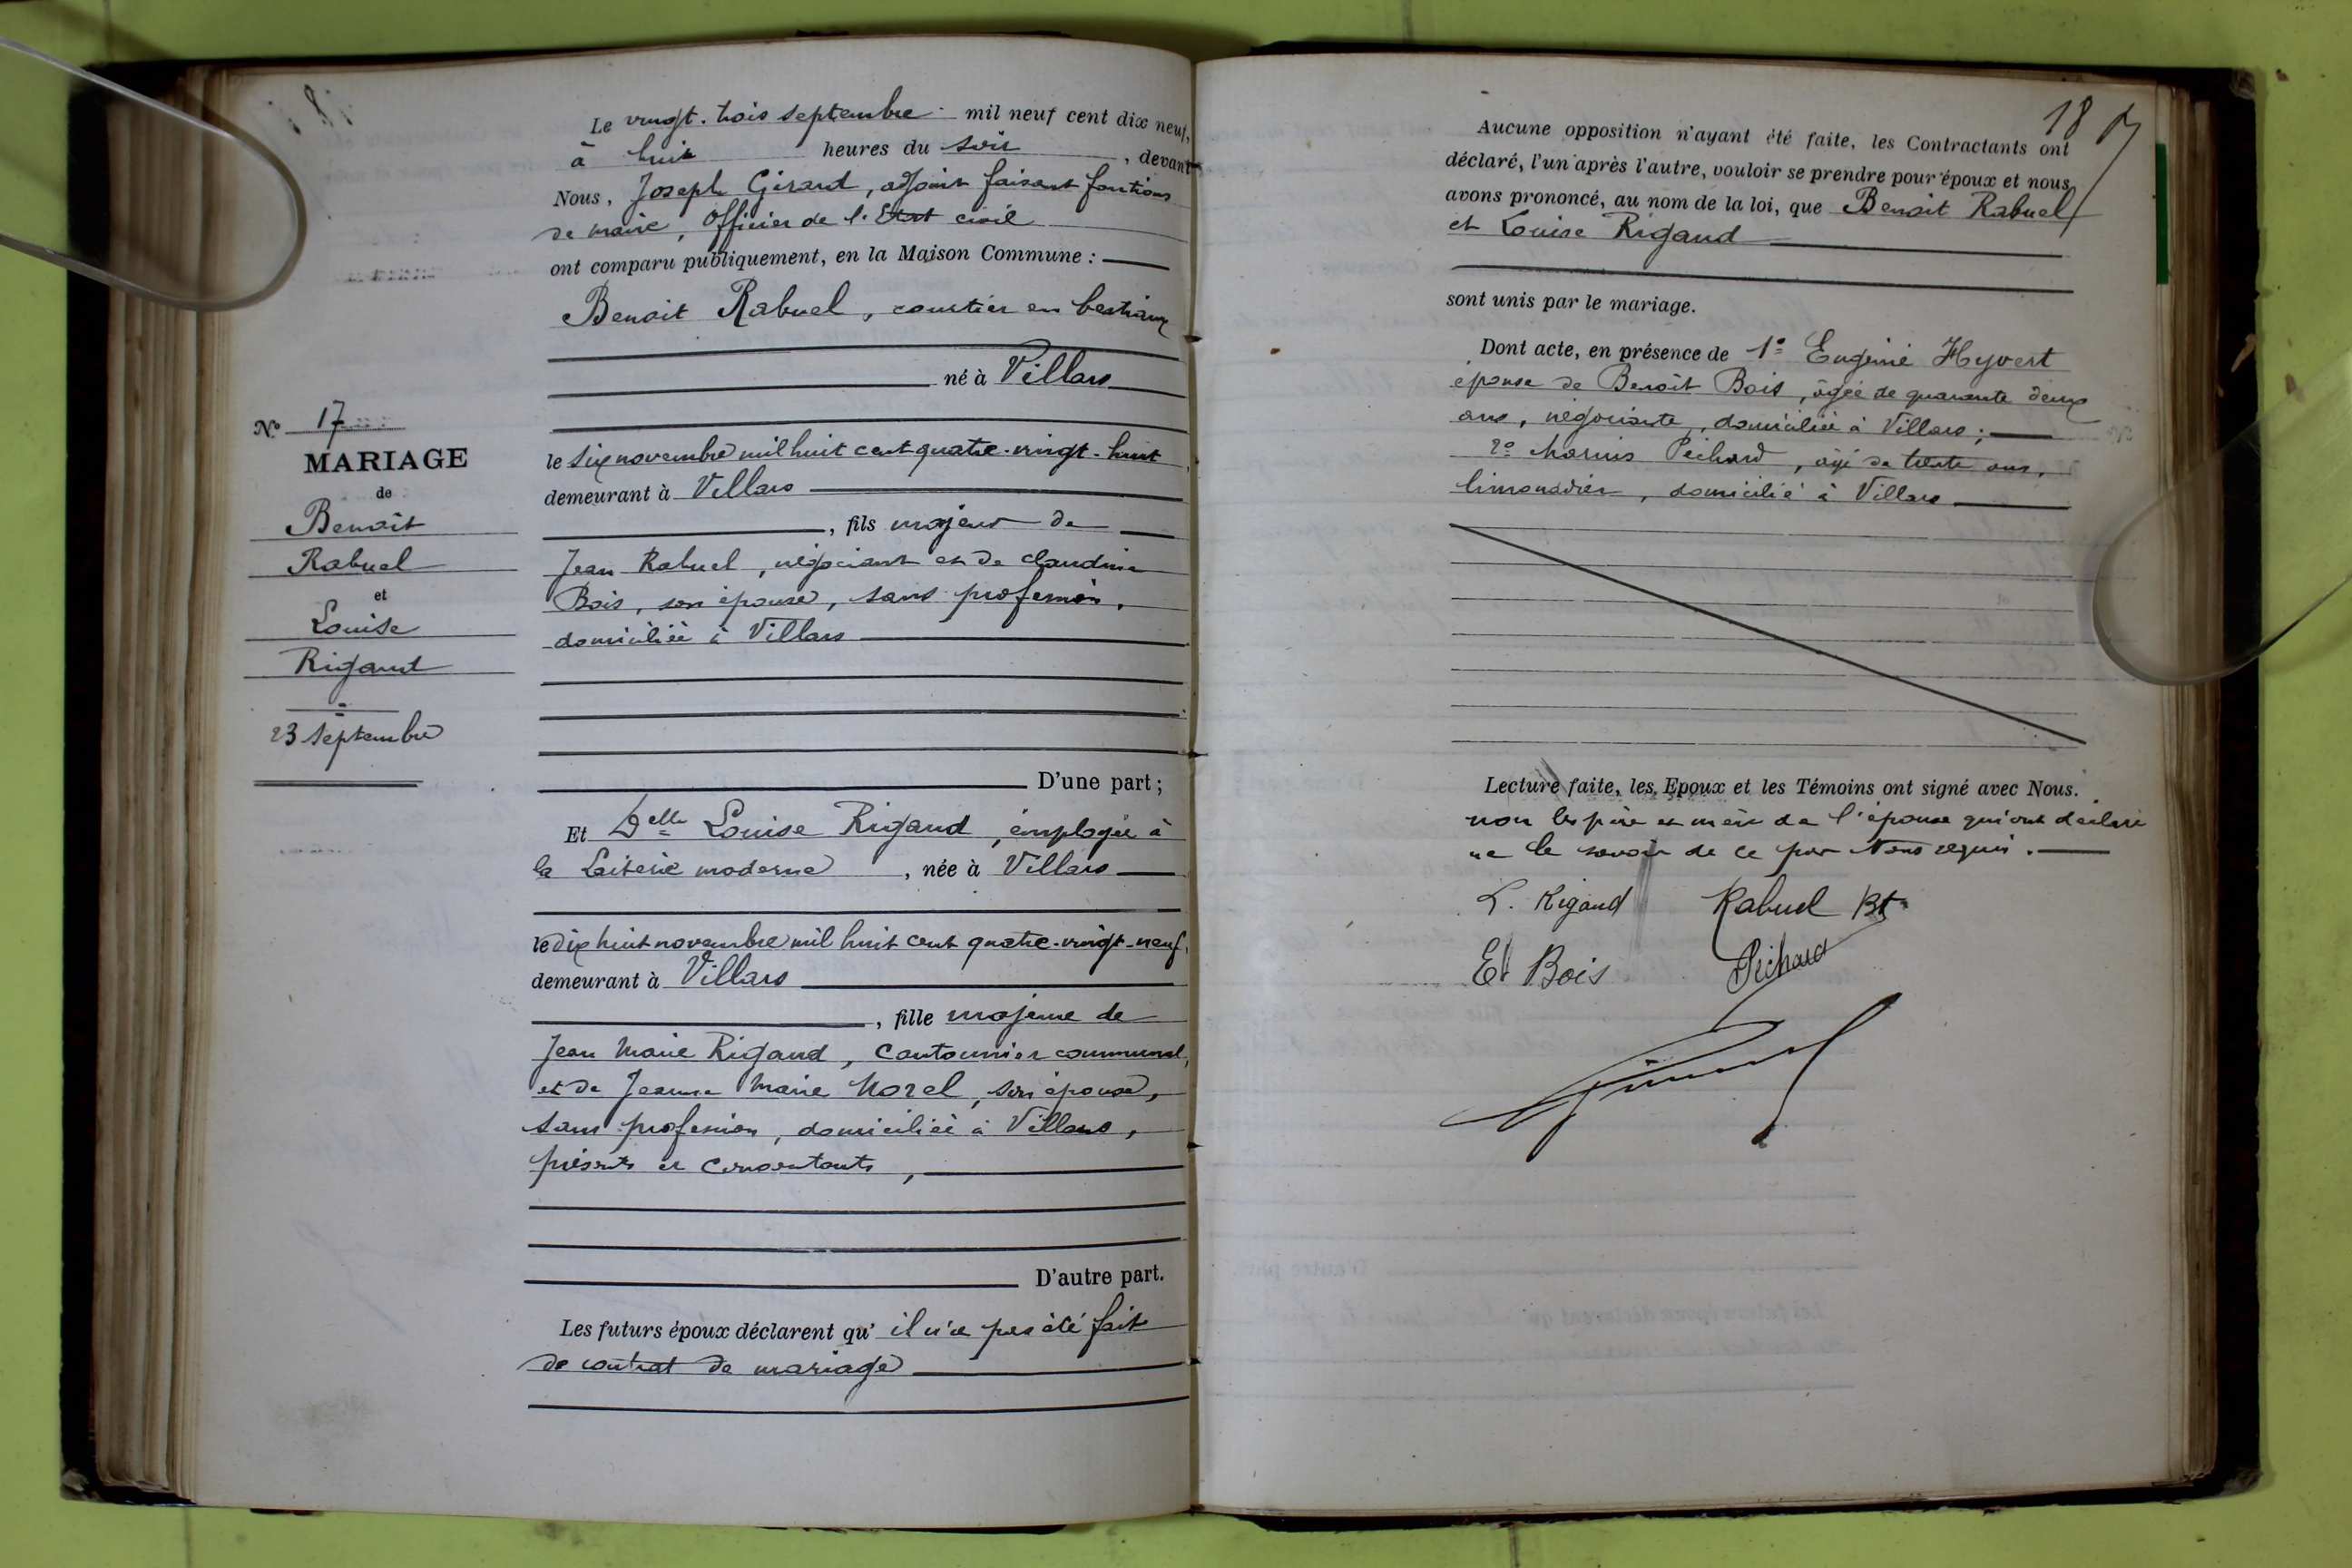 Le vingt-trois septembre mil neuf cent dix neuf,
à huit heures du soir, devant
Nous, Joseph Giraud, adjoint faisant fontions
de maire, Officier de l'Etat civil
ont comparu publiquement, en la Maison Commune :
Benoit Rabuel, courtier en bestiaux
né à Villars
le six novembre mil huit cent quatre-vingt-huit
demeurant à Villars
, fils majeur de
Jean Rabuel, négociant et de Claudine
Bois, son épouse, sans profession,
domiciliés à Villars
D'une part ;
Et Delle Louise Rigaud, employée à
la Laiterie moderne, née à Villars
le dix huit novembre mil huit cent quatre-vingt-neuf,
demeurant à Villars
, fille majeure de
Jean Marie Rigaud, Cantonnier communal,
et de Jeanne Marie Morel, son épouse,
sans profession, domiciliés à Villars,
présents et consentants,
D'autre part.
Les futurs époux déclarent qu'il n'a pas été fait
de contrat de mariage
N° 17
MARIAGE
de
Benoît
Rabuel
et
Louise
Rigaud
23 septembre
18
Aucune opposition n'ayant été faite, les Contractants ont
déclaré, l'un après l'autre, vouloir se prendre pour époux et nous
avons prononcé, au nom de la loi, que Benoit Rabuel
et Louise Rigaud
sont unis par le mariage.
Dont acte, en présence de 1° Eugénie Hyvert
épouse de Benoît Bois, âgée de quarante deux
ans, négociante, domiciliée à Villars ;
2° Marius Péchard, âgé de trente ans,
limonadier, domicilié à Villars
Lecture faite, les Epoux et les Témoins ont signé avec Nous.
non les père et mère de l'épouse qui ont déclaré
ne le savoir de ce par Nous requis.
L. Rigaud Rabuel Bt
Et Bois Péchard